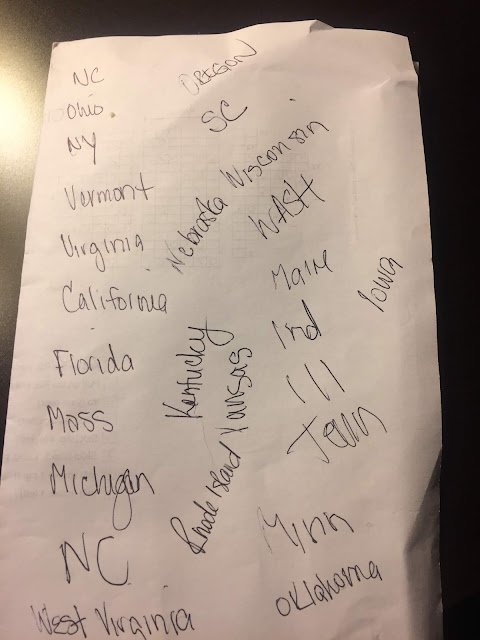 NC
Ohio
NY
Vermont
Virginia
California
Florida
Mass
Michigan
NC
West Virginia
OREGON
SC
Nebraska
Wisconsin
WASH
Kentucky
Kansas
Rhode Island
Maine
Ind
Ill
Tenn
Minn
Oklahoma
Iowa